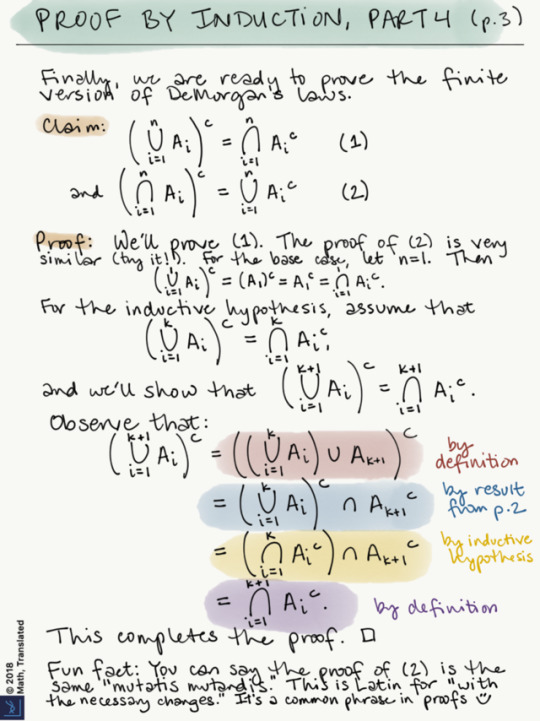 PROOF BY INDUCTION, PART 4 (p.3)
Finally, we are ready to prove the finite
version of DeMorgan's laws.
Claim: (⋃ᵢ₌₁ⁿ Aᵢ)ᶜ = ⋂ᵢ₌₁ⁿ Aᵢᶜ (1)
and (⋂ᵢ₌₁ⁿ Aᵢ)ᶜ = ⋃ᵢ₌₁ⁿ Aᵢᶜ (2)
Proof: We'll prove (1). The proof of (2) is very
similar (try it!). For the base case, let n=1. Then
(⋃ᵢ₌₁¹ Aᵢ)ᶜ = (A₁)ᶜ = A₁ᶜ = ⋂ᵢ₌₁¹ Aᵢᶜ.
For the inductive hypothesis, assume that
(⋃ᵢ₌₁ᵏ Aᵢ)ᶜ = ⋂ᵢ₌₁ᵏ Aᵢᶜ,
and we'll show that (⋃ᵢ₌₁ᵏ⁺¹ Aᵢ)ᶜ = ⋂ᵢ₌₁ᵏ⁺¹ Aᵢᶜ.
Observe that:
(⋃ᵢ₌₁ᵏ⁺¹ Aᵢ)ᶜ = ((⋃ᵢ₌₁ᵏ Aᵢ) ∪ Aₖ₊₁)ᶜ by definition
= (⋃ᵢ₌₁ᵏ Aᵢ)ᶜ ∩ Aₖ₊₁ᶜ by result from p.2
= (⋂ᵢ₌₁ᵏ Aᵢᶜ) ∩ Aₖ₊₁ᶜ by inductive hypothesis
= ⋂ᵢ₌₁ᵏ⁺¹ Aᵢᶜ. by definition
This completes the proof. □
Fun fact: You can say the proof of (2) is the
same "mutatis mutandis." This is Latin for "with
the necessary changes." It's a common phrase in proofs ☺
© 2018
Math, Translated